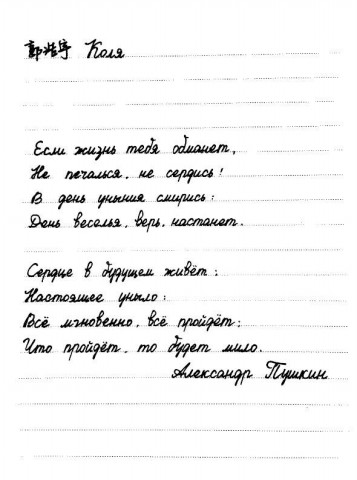 郭浩宇 Коля
Если жизнь тебя обманет,
Не печалься, не сердись!
В день уныния смирись:
День веселья, верь, настанет.
Сердце в будущем живёт;
Настоящее уныло:
Всё мгновенно, всё пройдёт;
Что пройдёт, то будет мило.
Александр Пушкин